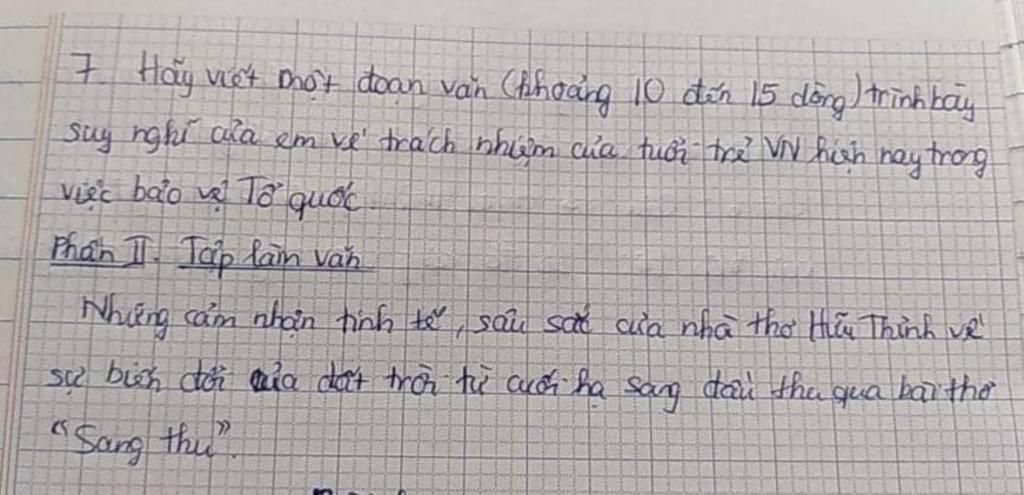 7 Hãy viết một đoạn văn (khoảng 10 đến 15 dòng) trình bày
suy nghĩ của em về trách nhiệm của tuổi trẻ VN hiện nay trong
việc bảo vệ Tổ quốc
Phần II. Tập làm văn
Những cảm nhận tinh tế, sâu sắc của nhà thơ Hữu Thỉnh về
sự biến đổi của đất trời từ cuối hạ sang đầu thu qua bài thơ
"Sang thu".